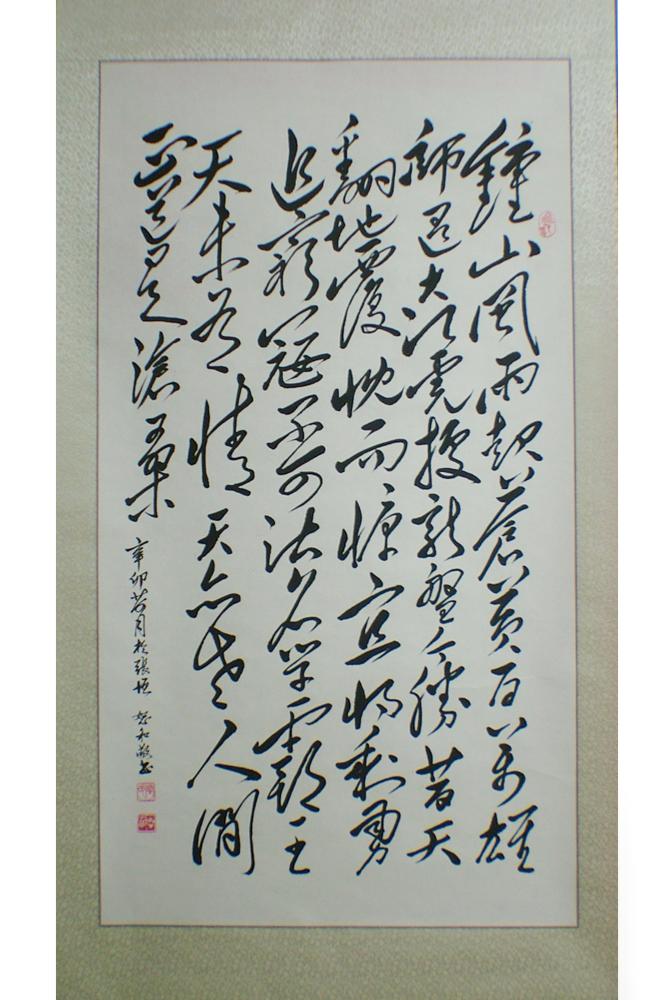 鍾山風雨起蒼黃百万雄
師過大江虎據龍盤今勝昔天
翻地覆慨而慷宜將剩勇
追窮寇不可沽名學霸王
天若有情天亦老人間
正道是滄桑
辛卯荷月於張垣 和敬书